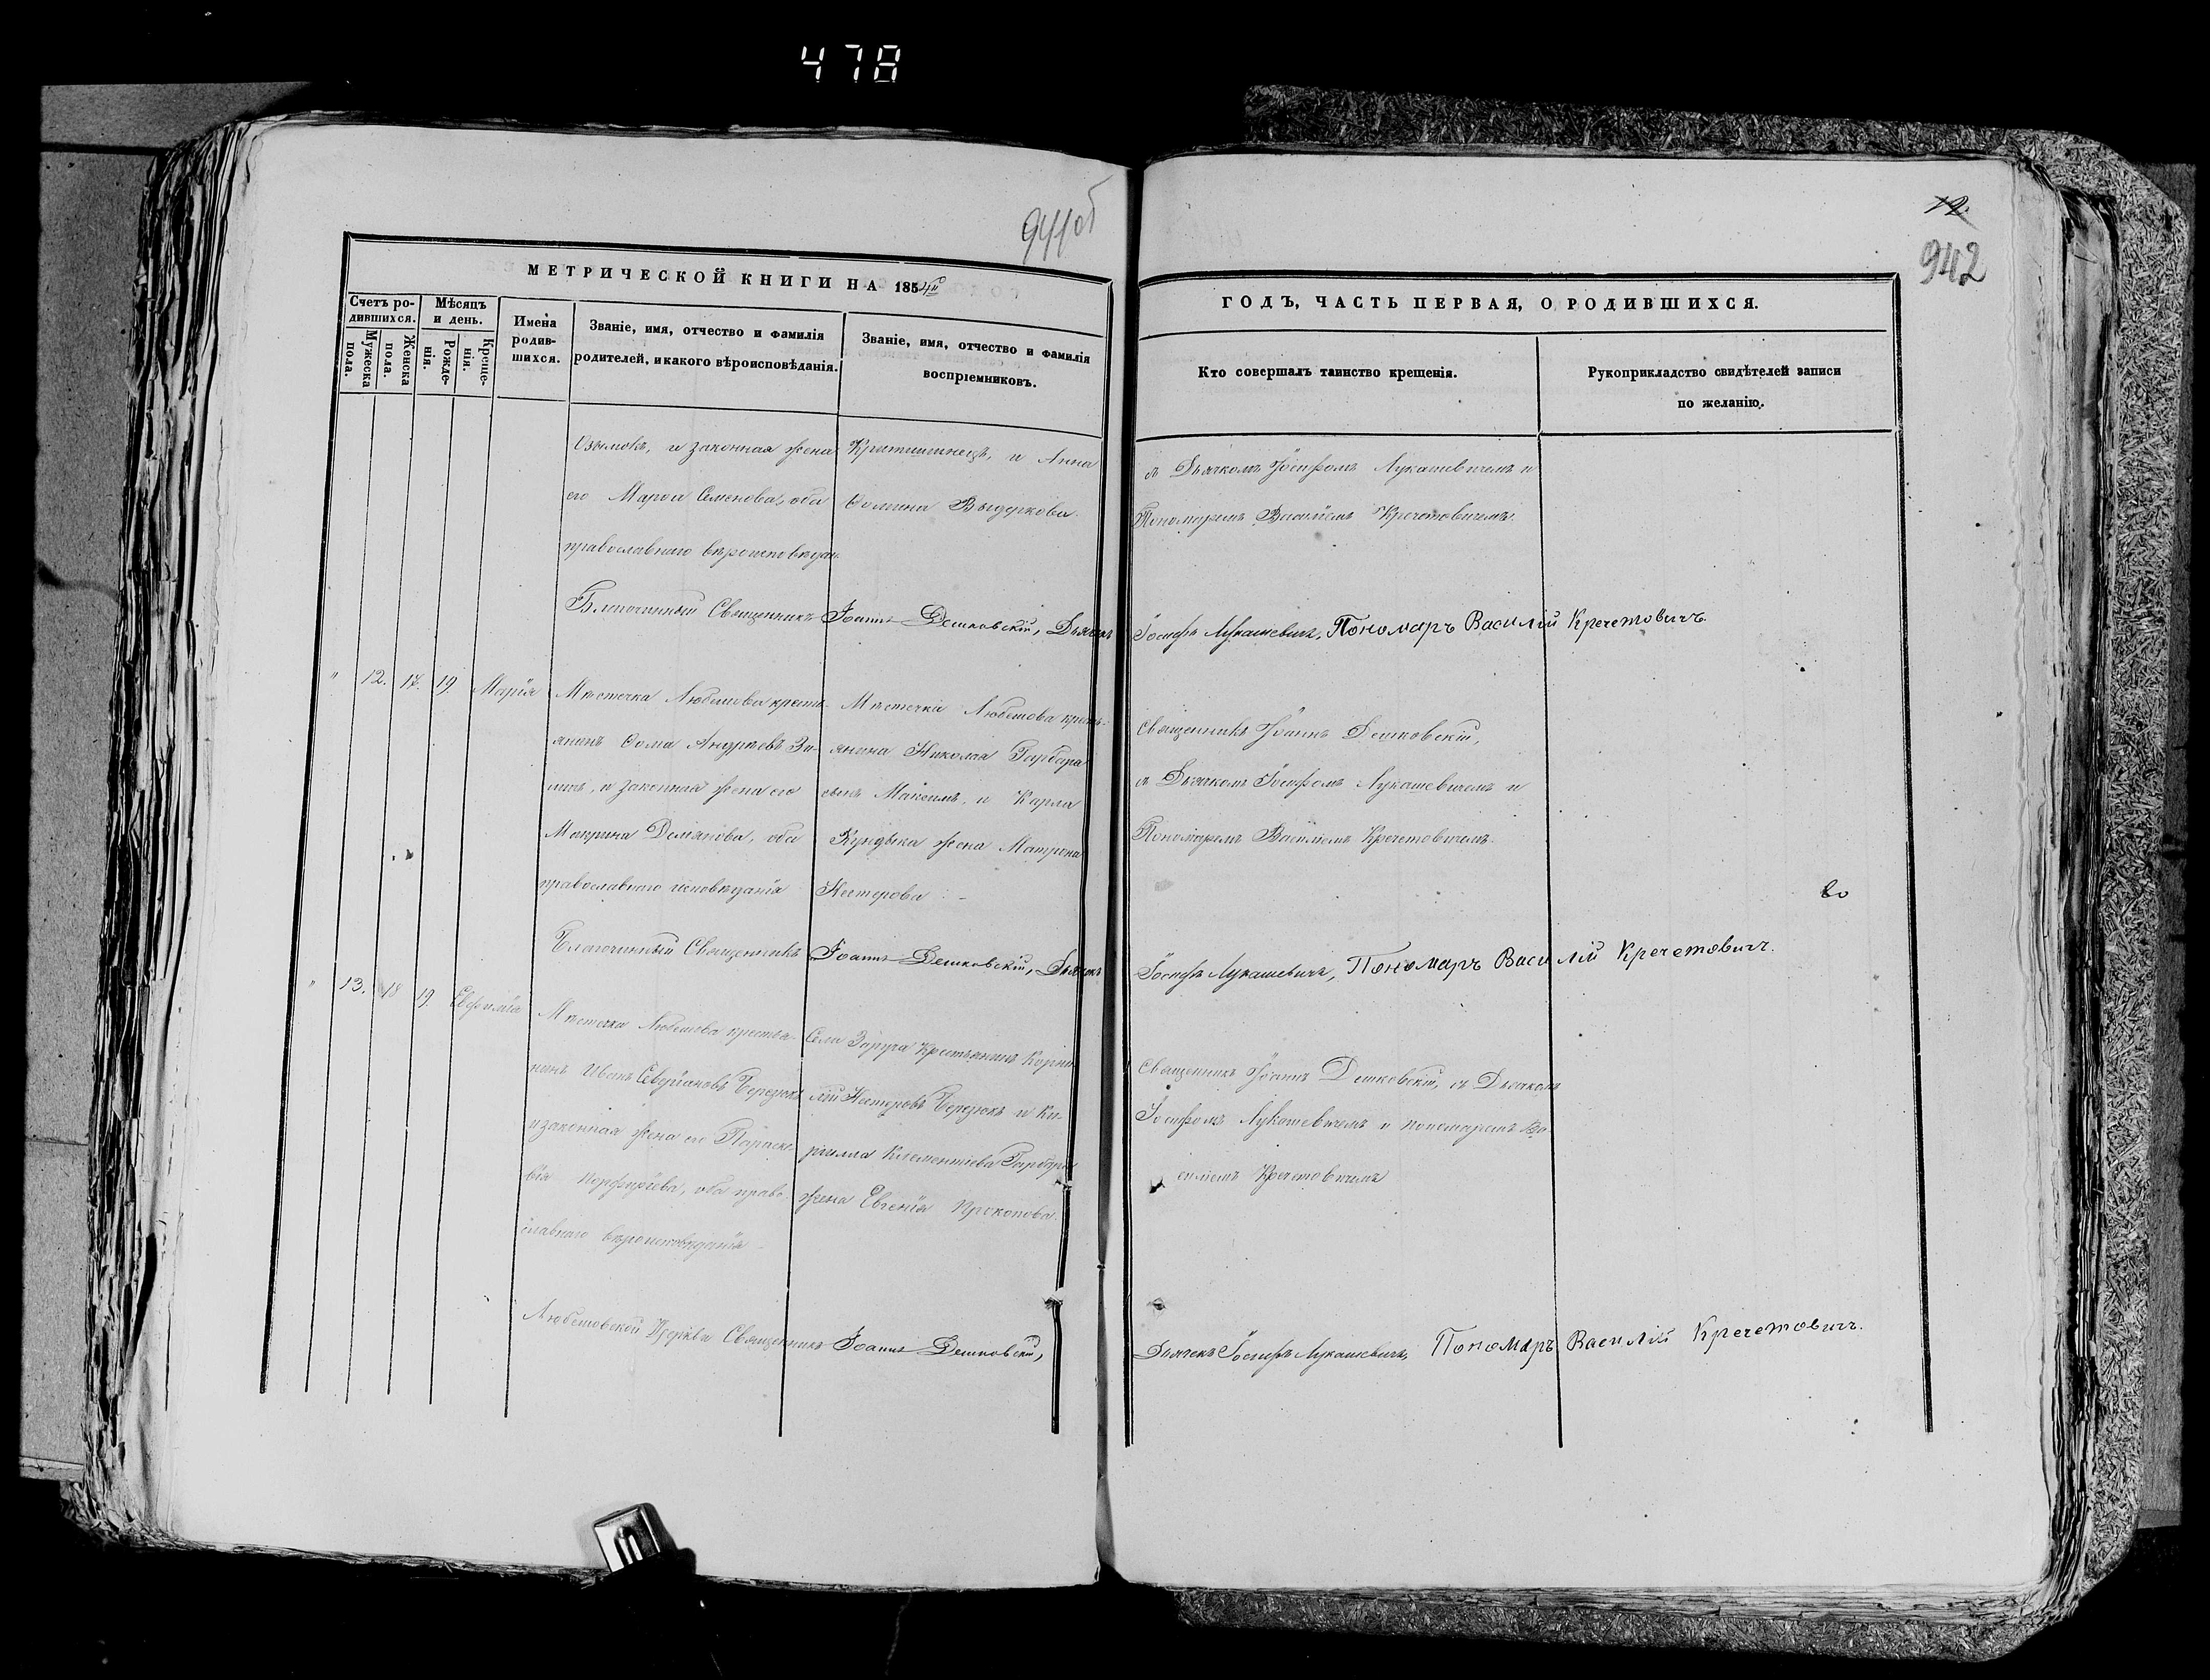 478
941об
МЕТРИЧЕСКОЙ КНИГИ НА 1854й
Счетъ ро-
дившихся.
Мужеска
пола.
Женска
пола.
Мѣсяцъ
и день.
Рожде-
нія.
Креще-
нія.
Имена
родив-
шихся.
Званіе, имя, отчество и фамилія
родителей, и какого вѣроисповѣданія.
Званіе, имя, отчество и фамилія
воспріемниковъ.
и законная жена
его Семенова, оба
православнаго вѣроисповѣдан.
и Анна
Фомина
Благочинный Священникъ Іоаннъ Дешковскій, Дьячекъ
" 12. 17. 19. Марія
Мѣстечка Любешова кресть-
янинъ Фома Андреевъ
и законная жена его
Демянова, оба
православнаго исповѣданія
Мѣстечка Любешова кресть-
янина Николая Гарбара
сынъ Максимъ, и Карпа
жена Матрона
Нестерова
Благочинный Священникъ Іоаннъ Дешковскій, Дьячекъ
" 13. 18 19. Евфимія
Мѣстечка Любешова крестья-
нинъ Иванъ Северіановъ Березюкъ
и законная жена его Параске-
вія Порфиріева, оба право-
славнаго вѣроисповѣданія
Села Заруча Крестьянинъ Корни-
лій Нестеровъ Березюкъ и Ки-
рилла Клементіева Гарбара
жена Евгенія Прокопова.
Любешовской Церкви Священникъ Іоаннъ Дешковскій,
12.
942
ГОДЪ, ЧАСТЬ ПЕРВАЯ, О РОДИВШИХСЯ.
Кто совершалъ таинство крещенія.
Рукоприкладство свидѣтелей записи
по желанію.
съ Дьячкомъ Іосифомъ Лукашевичемъ и
Пономаремъ Василіемъ Кречетовичемъ.
Іосифъ Лукашевичъ, Пономаръ Василій Кречетовичъ.
Священникъ Іоаннъ Дешковскій,
съ Дьячкомъ Іосифомъ Лукашевичемъ и
Пономаремъ Василіемъ Кречетовичемъ.
Іосифъ Лукашевичъ, Пономаръ Василій Кречетовичъ.
Священникъ Іоаннъ Дешковскій, съ Дьячкомъ
Іосифомъ Лукашевичемъ и пономаремъ Ва-
силіемъ Кречетовичемъ
Дьячекъ Іосифъ Лукашевичъ, Пономаръ Василій Кречетовичъ.